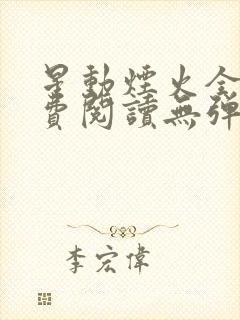 星動煙火全
費閱讀無彈
李宏偉